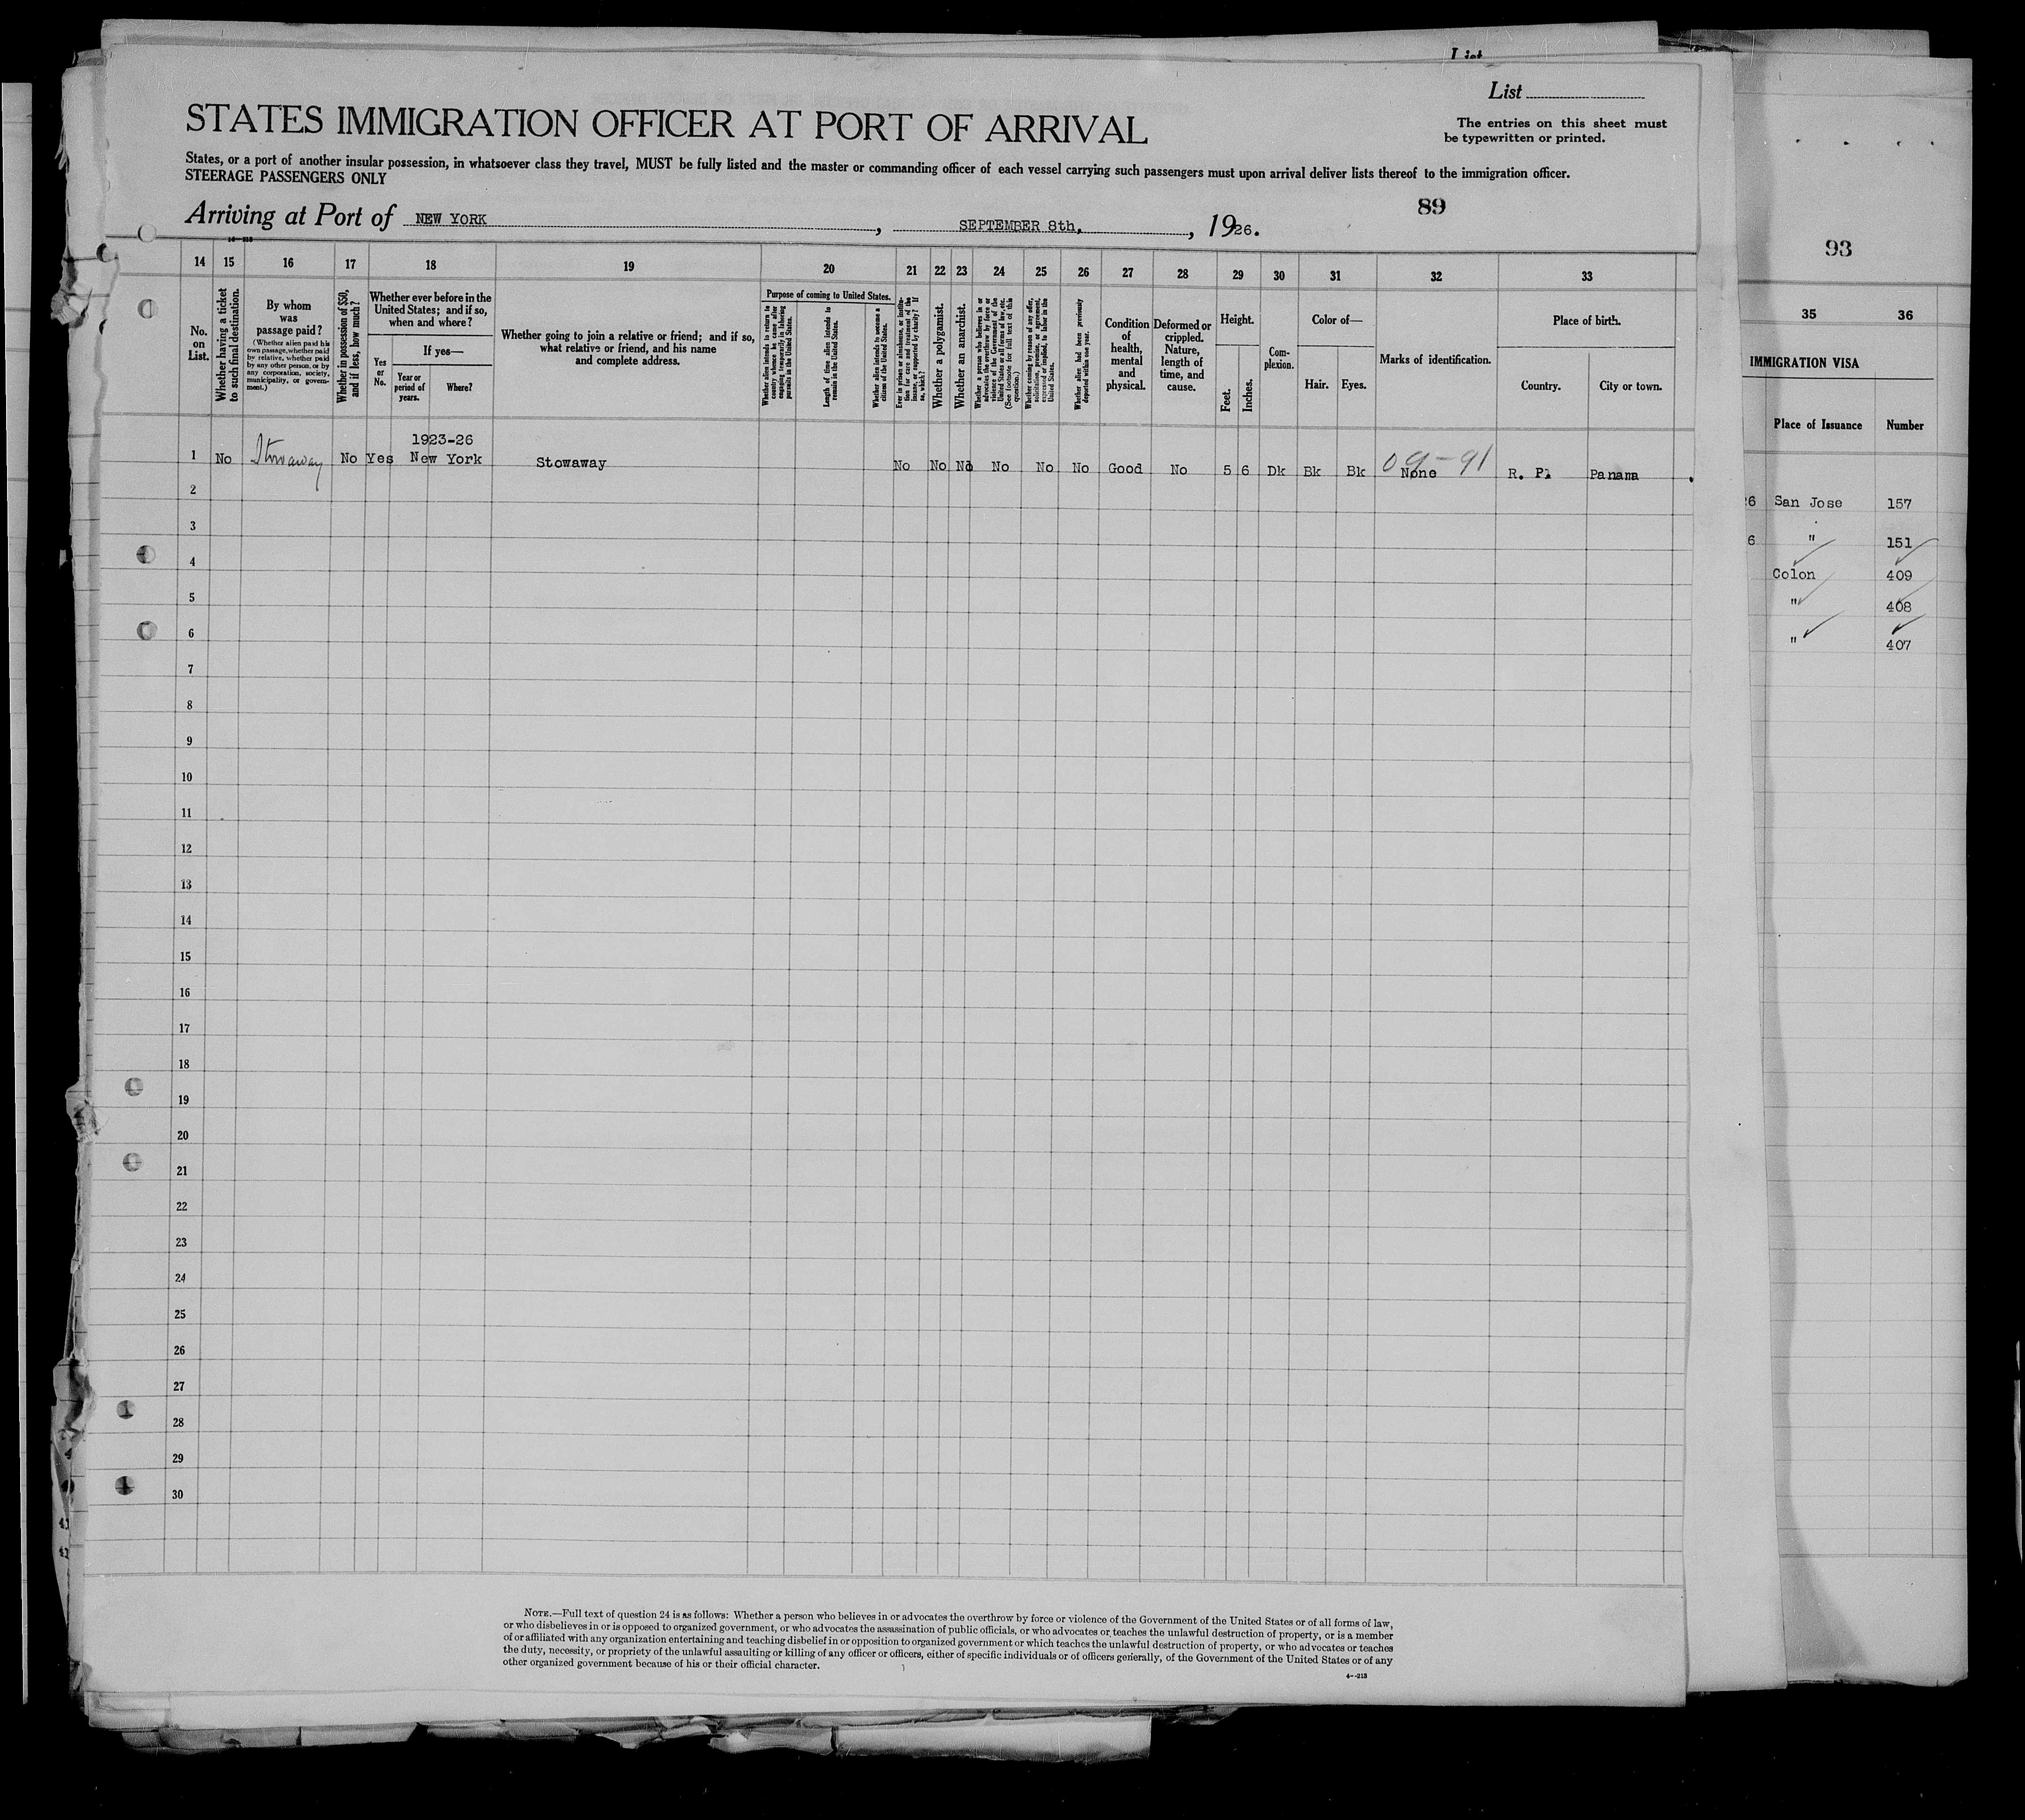 List
List
The entries on this sheet must
be typewritten or printed.
STATES IMMIGRATION OFFICER AT PORT OF ARRIVAL
States, or a port of another insular possession, in whatsoever class they travel, MUST be fully listed and the master or commanding officer of each vessel carrying such passengers must upon arrival deliver lists thereof to the immigration officer.
STEERAGE PASSENGERS ONLY
89
Arriving at Port of NEW YORK, SEPTEMBER 8th, 1926.
14 15 16 17 18 19 20 21 22 23 24 25 26 27 28 29 30 31 32 33
No. on List.
Whether having a ticket to such final destination.
By whom was passage paid?
(Whether alien paid his own passage, whether paid by relative, whether paid by any other person, or by any corporation, society, municipality, or government.)
Whether in possession of $50, and if less, how much?
Whether ever before in the United States; and if so, when and where?
Yes or No.
If yes—
Year or period of years.
Where?
Whether going to join a relative or friend; and if so, what relative or friend, and his name and complete address.
Purpose of coming to United States.
Whether alien intends to return to country whence he came after engaging temporarily in laboring pursuits in the United States.
Length of time alien intends to remain in the United States.
Whether alien intends to become a citizen of the United States.
Ever in prison or almshouse, or institution for care and treatment of the insane, or supported by charity? If so, which?
Whether a polygamist.
Whether an anarchist.
Whether a person who believes in or advocates the overthrow by force or violence of the Government of the United States or all forms of law, etc. (See footnote for full text of this question.)
Whether coming by reason of any offer, solicitation, promise, or agreement, expressed or implied, to labor in the United States.
Whether alien had been previously deported within one year.
Condition of health, mental and physical.
Deformed or crippled. Nature, length of time, and cause.
Height.
Feet. Inches.
Complexion.
Color of—
Hair. Eyes.
Marks of identification.
Place of birth.
Country. City or town.
1923-26
1 No Stowaway No Yes New York Stowaway No No No No No No Good No 5 6 Dk Bk Bk 09-91 None R. P. Panama
2
3
4
5
6
7
8
9
10
11
12
13
14
15
16
17
18
19
20
21
22
23
24
25
26
27
28
29
30
NOTE.—Full text of question 24 is as follows: Whether a person who believes in or advocates the overthrow by force or violence of the Government of the United States or of all forms of law,
or who disbelieves in or is opposed to organized government, or who advocates the assassination of public officials, or who advocates or teaches the unlawful destruction of property, or is a member
of or affiliated with any organization entertaining and teaching disbelief in or opposition to organized government or which teaches the unlawful destruction of property, or who advocates or teaches
the duty, necessity, or propriety of the unlawful assaulting or killing of any officer or officers, either of specific individuals or of officers generally, of the Government of the United States or of any
other organized government because of his or their official character.
93
35 36
IMMIGRATION VISA
Place of Issuance Number
6 San Jose 157
6 " 151
Colon 409
" 408
" 407